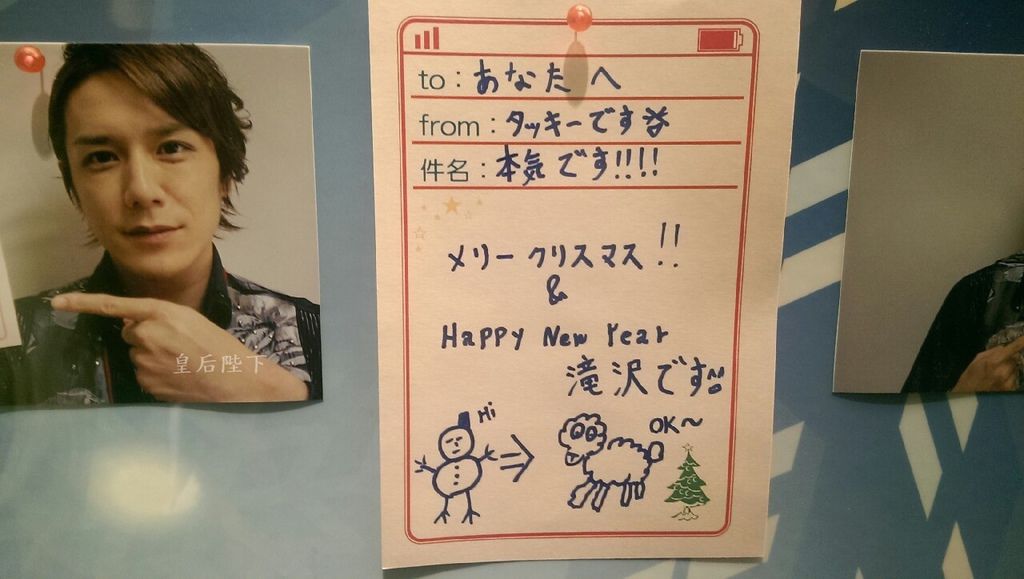 to：あなたへ
from：タッキーです
件名：本気です!!!!
メリークリスマス!!
&
Happy New Year
滝沢です!!
Hi
OK～
皇后陛下